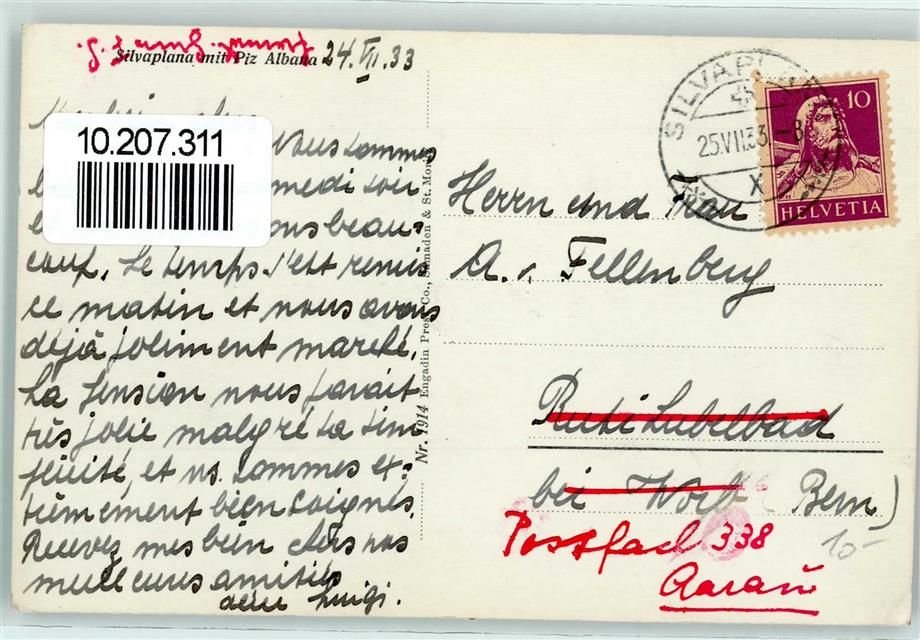 Silvaplana mit Piz Albana 24. VII. 33
10.207.311
Nous sommes
medi soir
ons beau-
coup. Le temps s'est remis
ce matin et nous avons
déjà joliment marché.
La pension nous parait
très jolie malgré sa sim
plicité, et ns. sommes ex-
trêmement bien soignés.
Recevez mes bien chers nos
meilleures amitiés
Luigi.
Nr. 1914 Engadin Press Co., Samaden & St. Moritz
SILVAPLANA
25.VII.33.-8
X
10
HELVETIA
Herrn und Frau
A. v. Fellenberg
Ruti Lubelbad
bei Worb (Bern)
Postfach 338
Aarau
10-